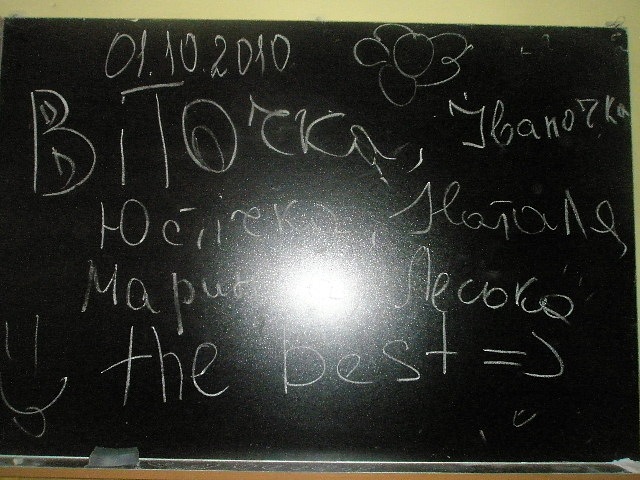 01.10.2010
ВІТОчка, Іваночка
Юсічка, Наталя
Леська
the best =)